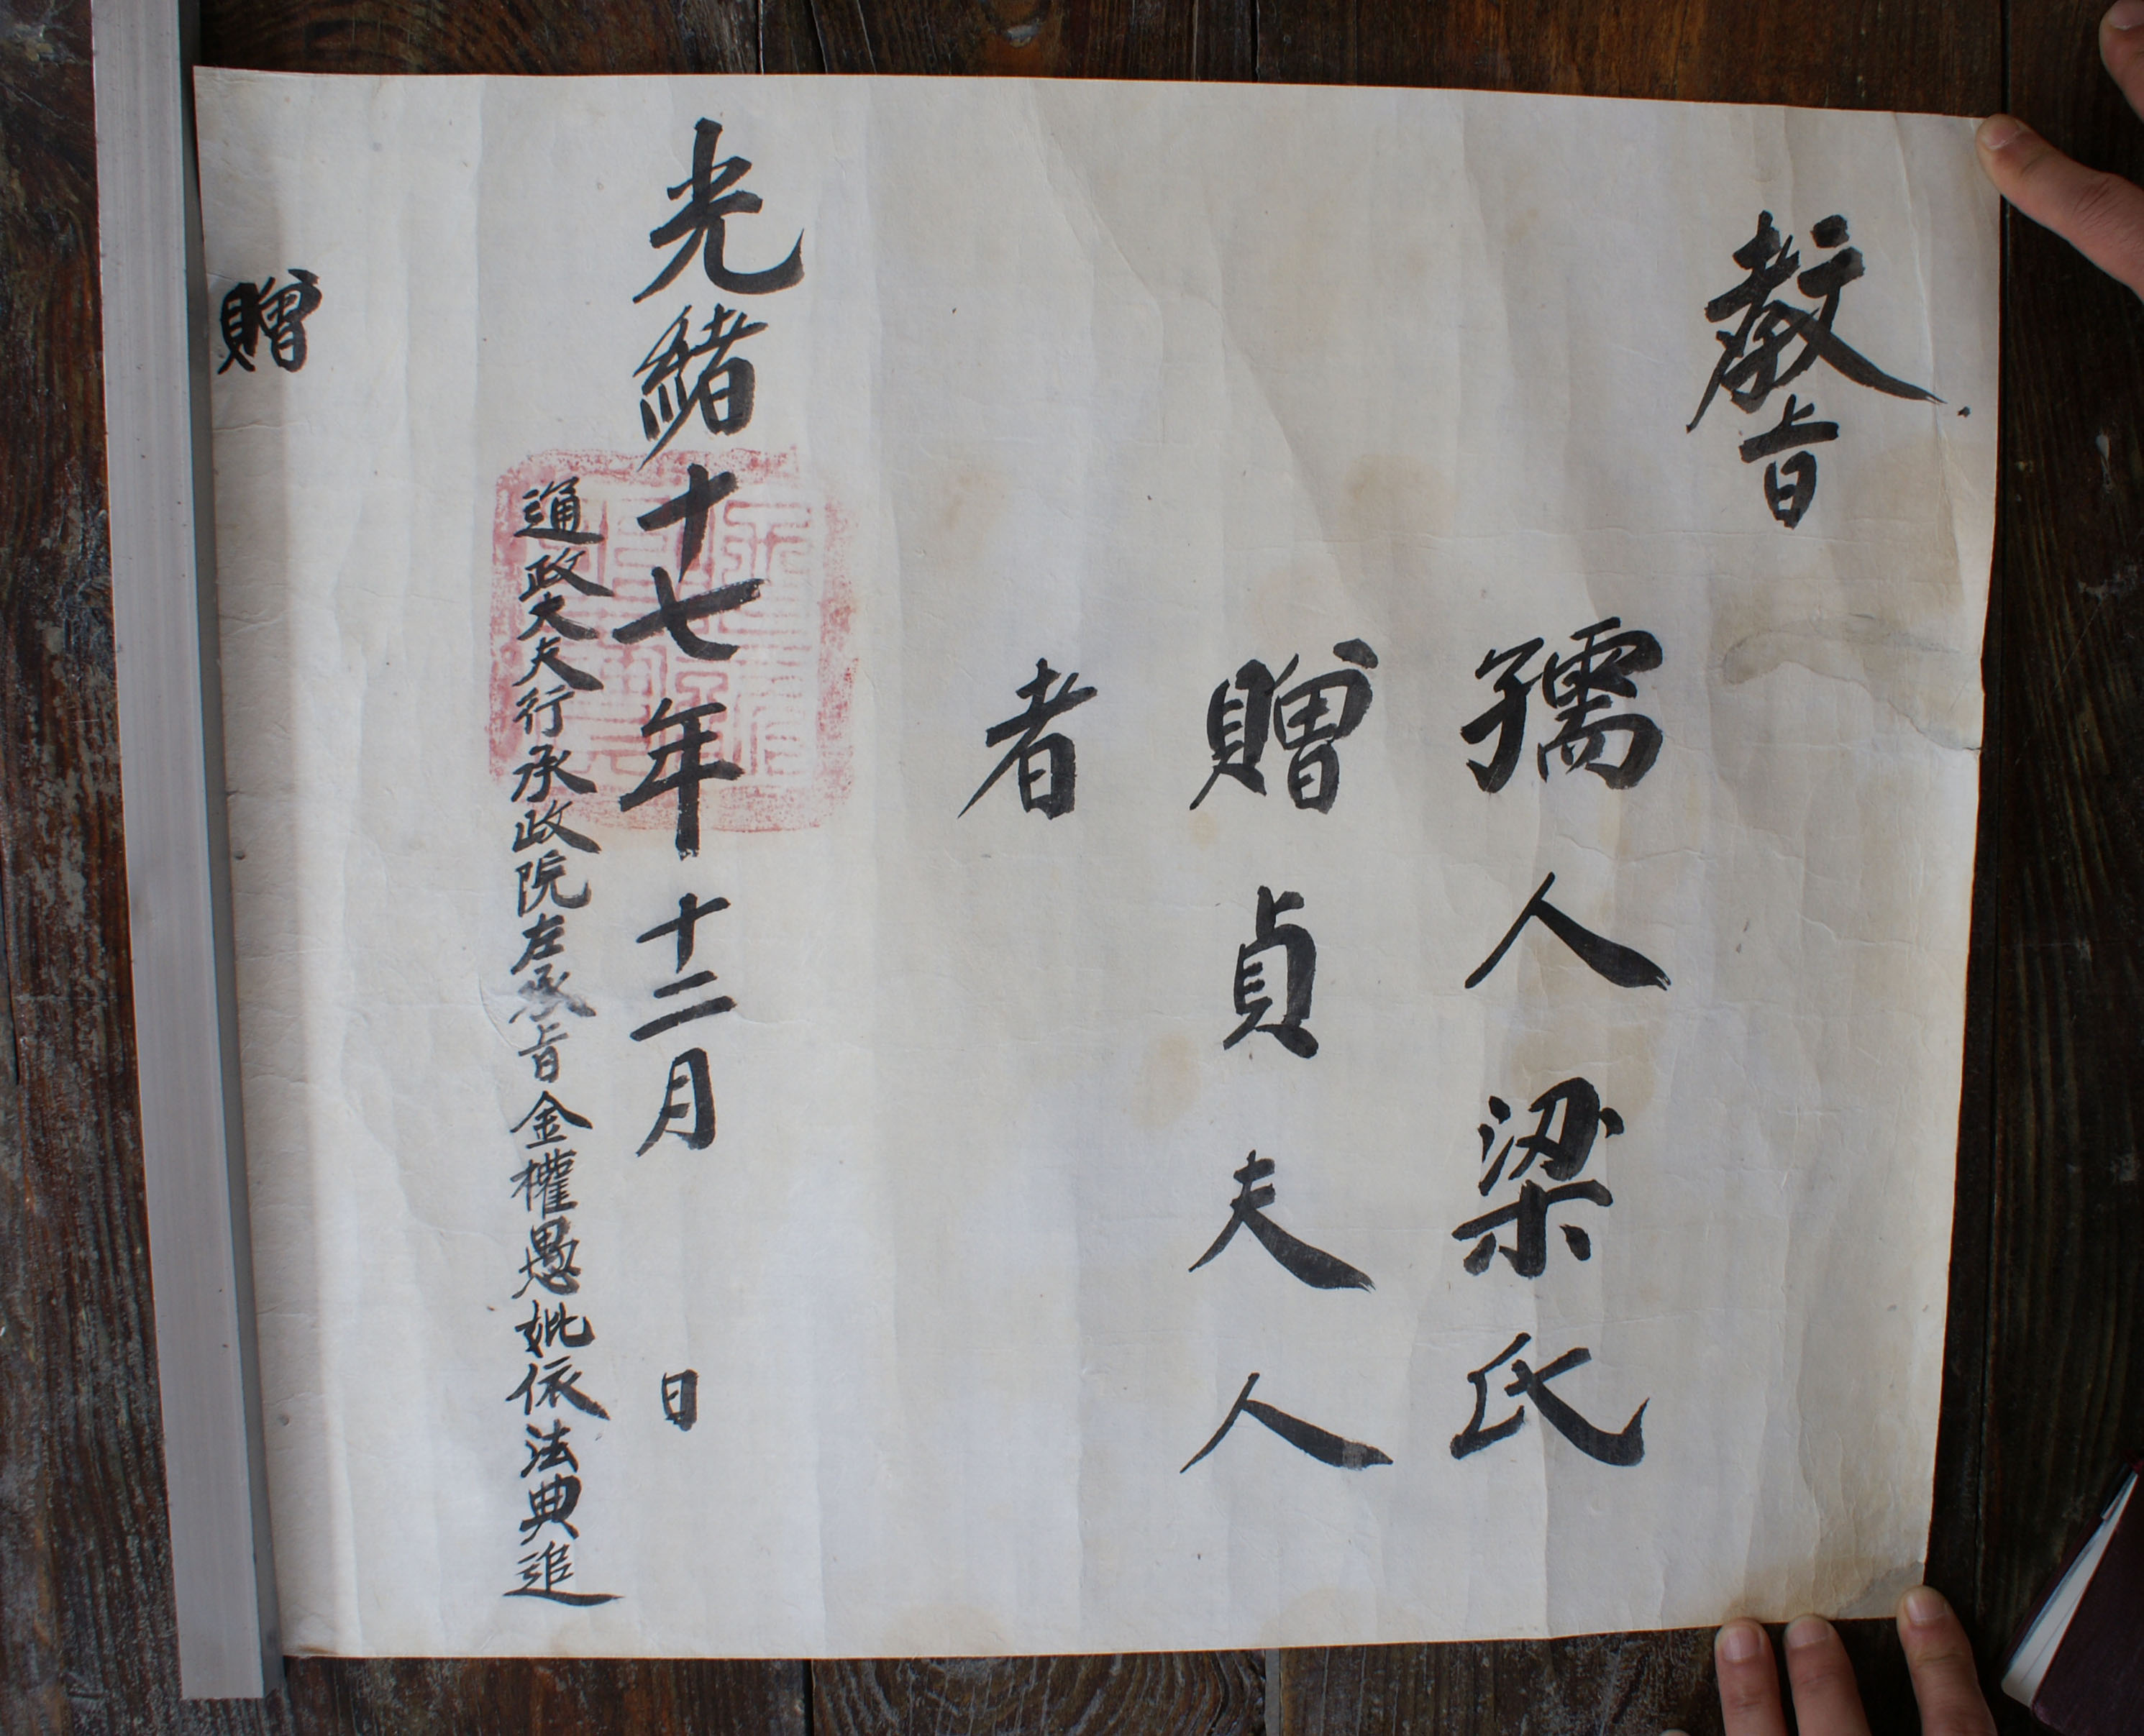 教旨
孺人梁氏
贈貞夫人
者
光緖十七年十二月 日
通政大夫行承政院左承旨金權愚妣依法典追
贈